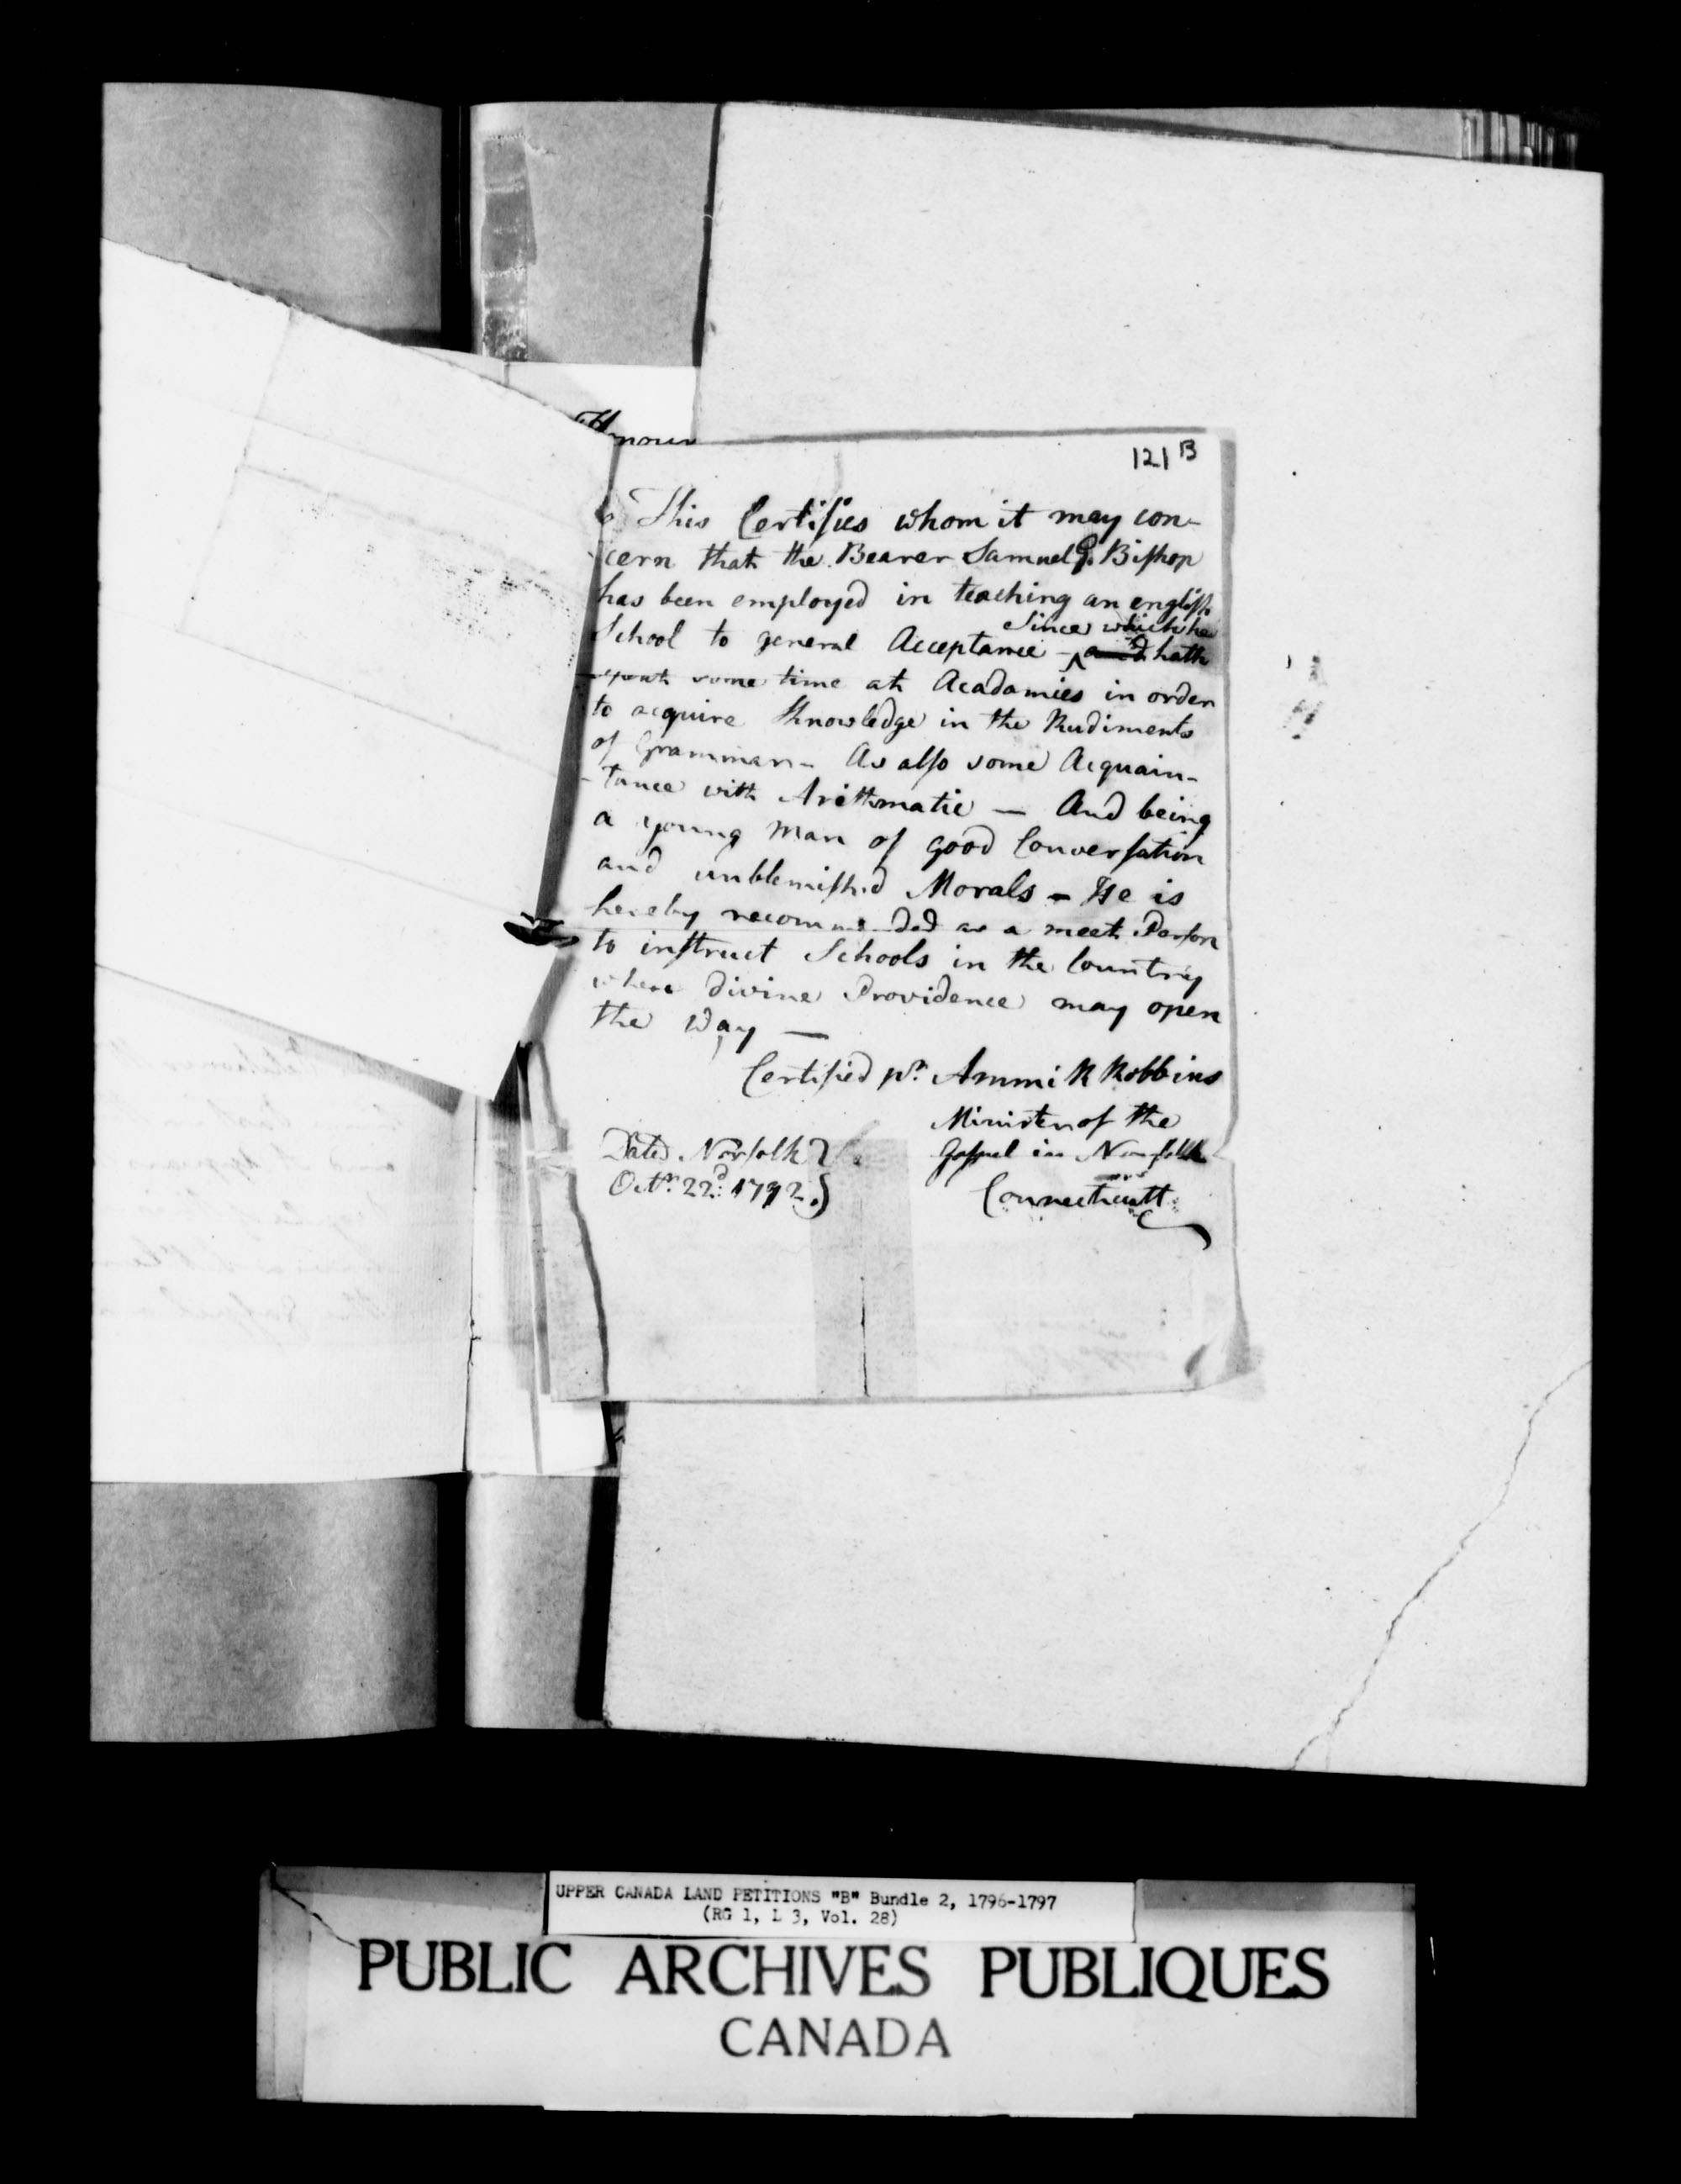 Honour
121 B
This Certifies whom it may con-
cern that the Bearer Samuel G. Bishop
has been employed in teaching an english
Since which he
School to general Acceptance - and hath
spent some time at Acadamies in order
to acquire Knowledge in the Rudiments
of Grammar - As also some Acquain-
-tance with Arithmatic — And being
a young Man of good Conversation
and unblemished Morals - He is
hereby recommended as a meet Person
to instruct Schools in the Country
where divine Providence may open
the Way —
Certified pr. Ammi R Robbins
Minister of the
Gospel in Norfolk
Connecticutt
Dated Norfolk
Octr. 22d: 1792.
UPPER CANADA LAND PETITIONS "B" Bundle 2, 1796-1797
(RG 1, L 3, Vol. 28)
PUBLIC ARCHIVES PUBLIQUES
CANADA